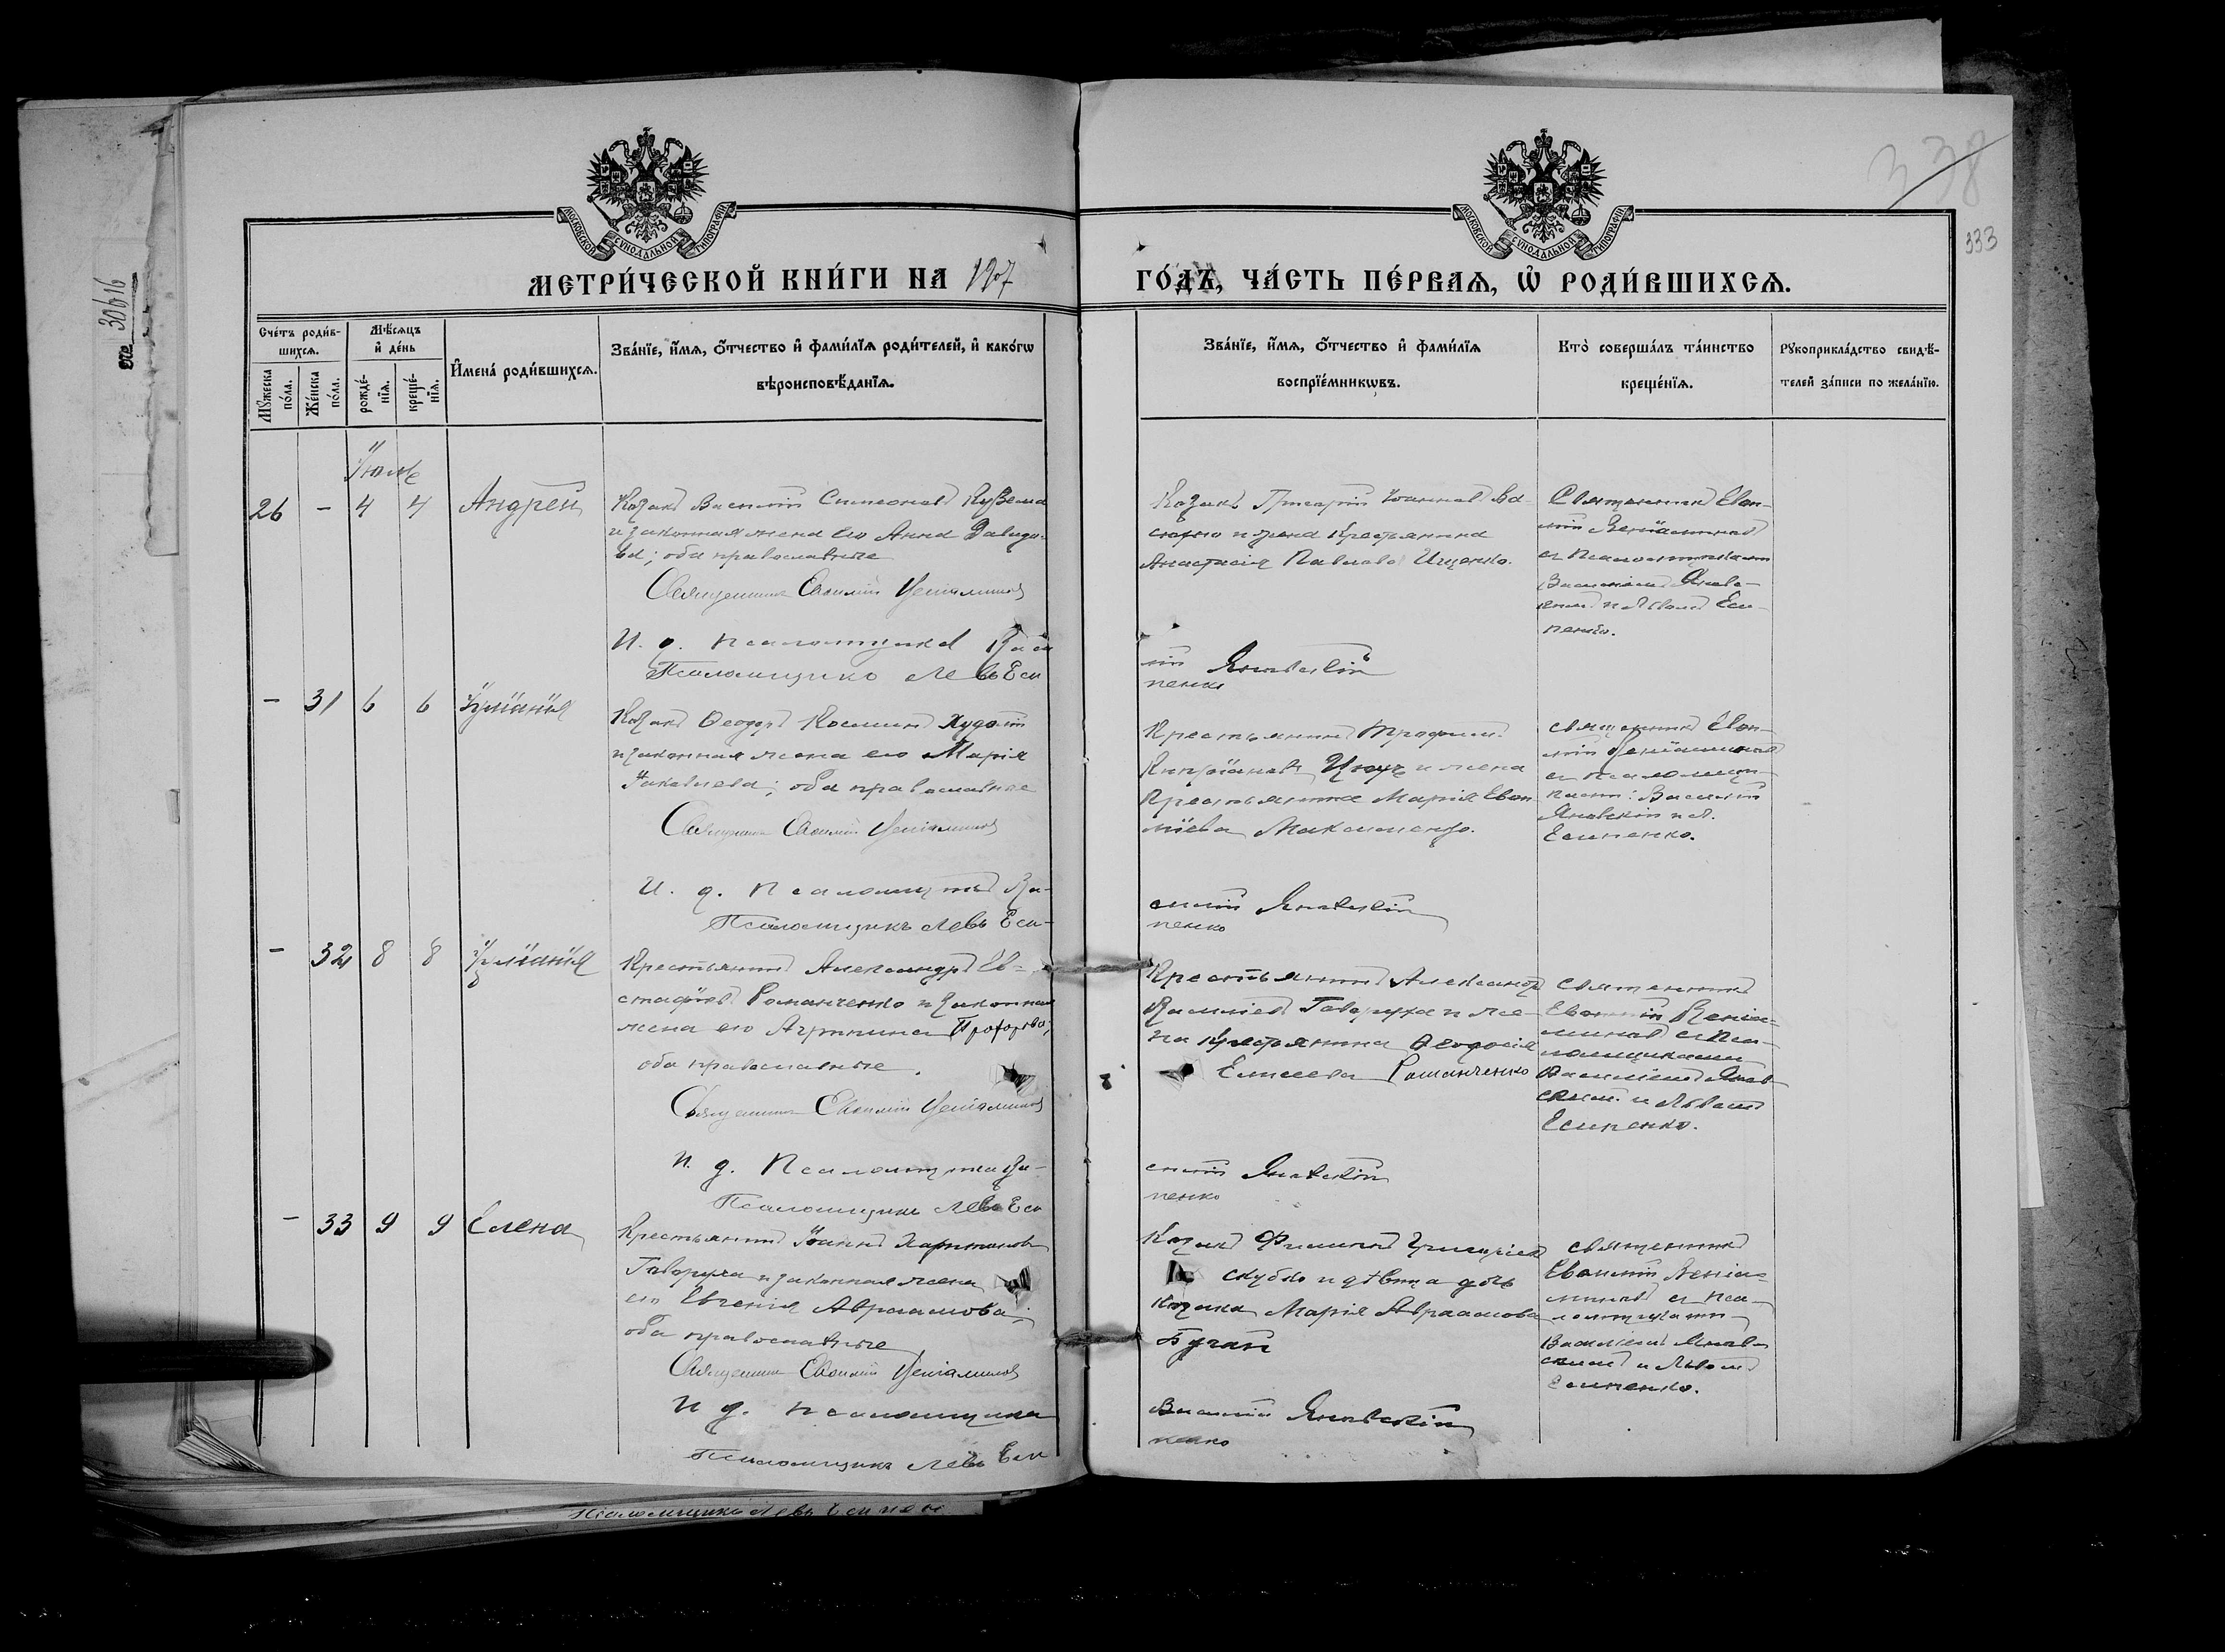 МОСКОВСКОЙ СУНОДАЛЬНОЙ ТИПОГРАФІИ
МОСКОВСКОЙ СУНОДАЛЬНОЙ ТИПОГРАФІИ
338
333
30616
МЕТРИ́ЧЕСКОЙ КНИ́ГИ НА 1907
ГО́ДЪ, ЧА́СТЬ ПЕ́РВАЯ, Ѡ҆ РОДИ́ВШИХСЯ.
Сче́тъ роди́в-
шихся.
Мꙋ́жеска по́ла.
Же́нска по́ла.
Мѣ́сяцъ
и҆ де́нь
рожде́-
нїя.
креще́-
нїя.
И҆мена̀ роди́вшихся.
Зва́нїе, и҆́мя, ѻ҆́тчество и҆ фами́лїя роди́телей, и҆ како́гѡ
вѣроисповѣ́данїя.
Зва́нїе, и҆́мя, ѻ҆́тчество и҆ фами́лїя
воспрїе́мникѡвъ.
Кто̀ соверша́лъ та́инство
креще́нїя.
Рꙋкоприкла́дство свидѣ́-
телей за́писи по жела́нїю.
Іюль
26 - 4 4 Андрей
Козакъ Василій Симеоновъ Кузема
и законная жена его Анна Давидо-
ва; оба православные
Священникъ Евѳимій Веніаминовъ
И. д. псаломщика Васи
Псаломщикъ Левъ Еси
Козакъ Григорій Іоанновъ
и жена Крестьянина
Анастасія Павлова Ищенко.
лій Яновскій
пенко
Священникъ Евѳи-
мій Веніаминовъ
съ псаломщиками
Василіемъ Янов-
скимъ и Львомъ Еси-
пенко.
- 31 6 6 Іуліанія
Козакъ Ѳеодоръ Косминъ Худолій
и законная жена его Марія
Іаковлева; оба православные
Священникъ Евѳимій Веніаминовъ
И. д. псаломщика Ва-
Псаломщикъ Левъ Еси-
Крестьянинъ Трофимъ
Кипріановъ и жена
Крестьянина Марія Евѳи-
міева Максименко.
силій Яновскій
пенко
священникъ Евѳи-
мій Веніаминовъ
съ псаломщи-
ками: Василій
Яновскій и Л.
Есипенко.
- 32 8 8 Іуліанія
Крестьянинъ Александръ Ев-
стафіевъ Романченко и законная
жена его Агрипина Прохорова;
оба православные.
Священникъ Евѳимій Веніаминовъ
И. д. Псаломщика Ва-
Псаломщикъ Левъ Еси
Крестьянинъ Александръ
Василіевъ Говоруха и же-
на крестьянина Ѳеодосія
Елисеева Романченко
силій Яновскій
пенко
священникъ
Евѳимій Веніа-
миновъ съ пса-
ломщиками
Василіемъ Янов-
скимъ и Львомъ
Есипенко.
- 33 9 9 Елена
Крестьянинъ Іоаннъ Харитоновъ
Говоруха и законная жена
его Евгенія Авраамова;
оба православные
Священникъ Евѳимій Веніаминовъ
И д. псаломщика
Псаломщикъ Левъ Еси
Козакъ Филиппъ Григоріевъ
Скубко и дѣвица дочь
козака Марія Авраамова
Бугай
Василій Яновскій
пенко
священникъ
Евѳимій Веніа-
миновъ съ пса-
ломщиками
Василіемъ Янов-
скимъ и Львомъ
Есипенко.
Псаломщикъ Левъ Есипен